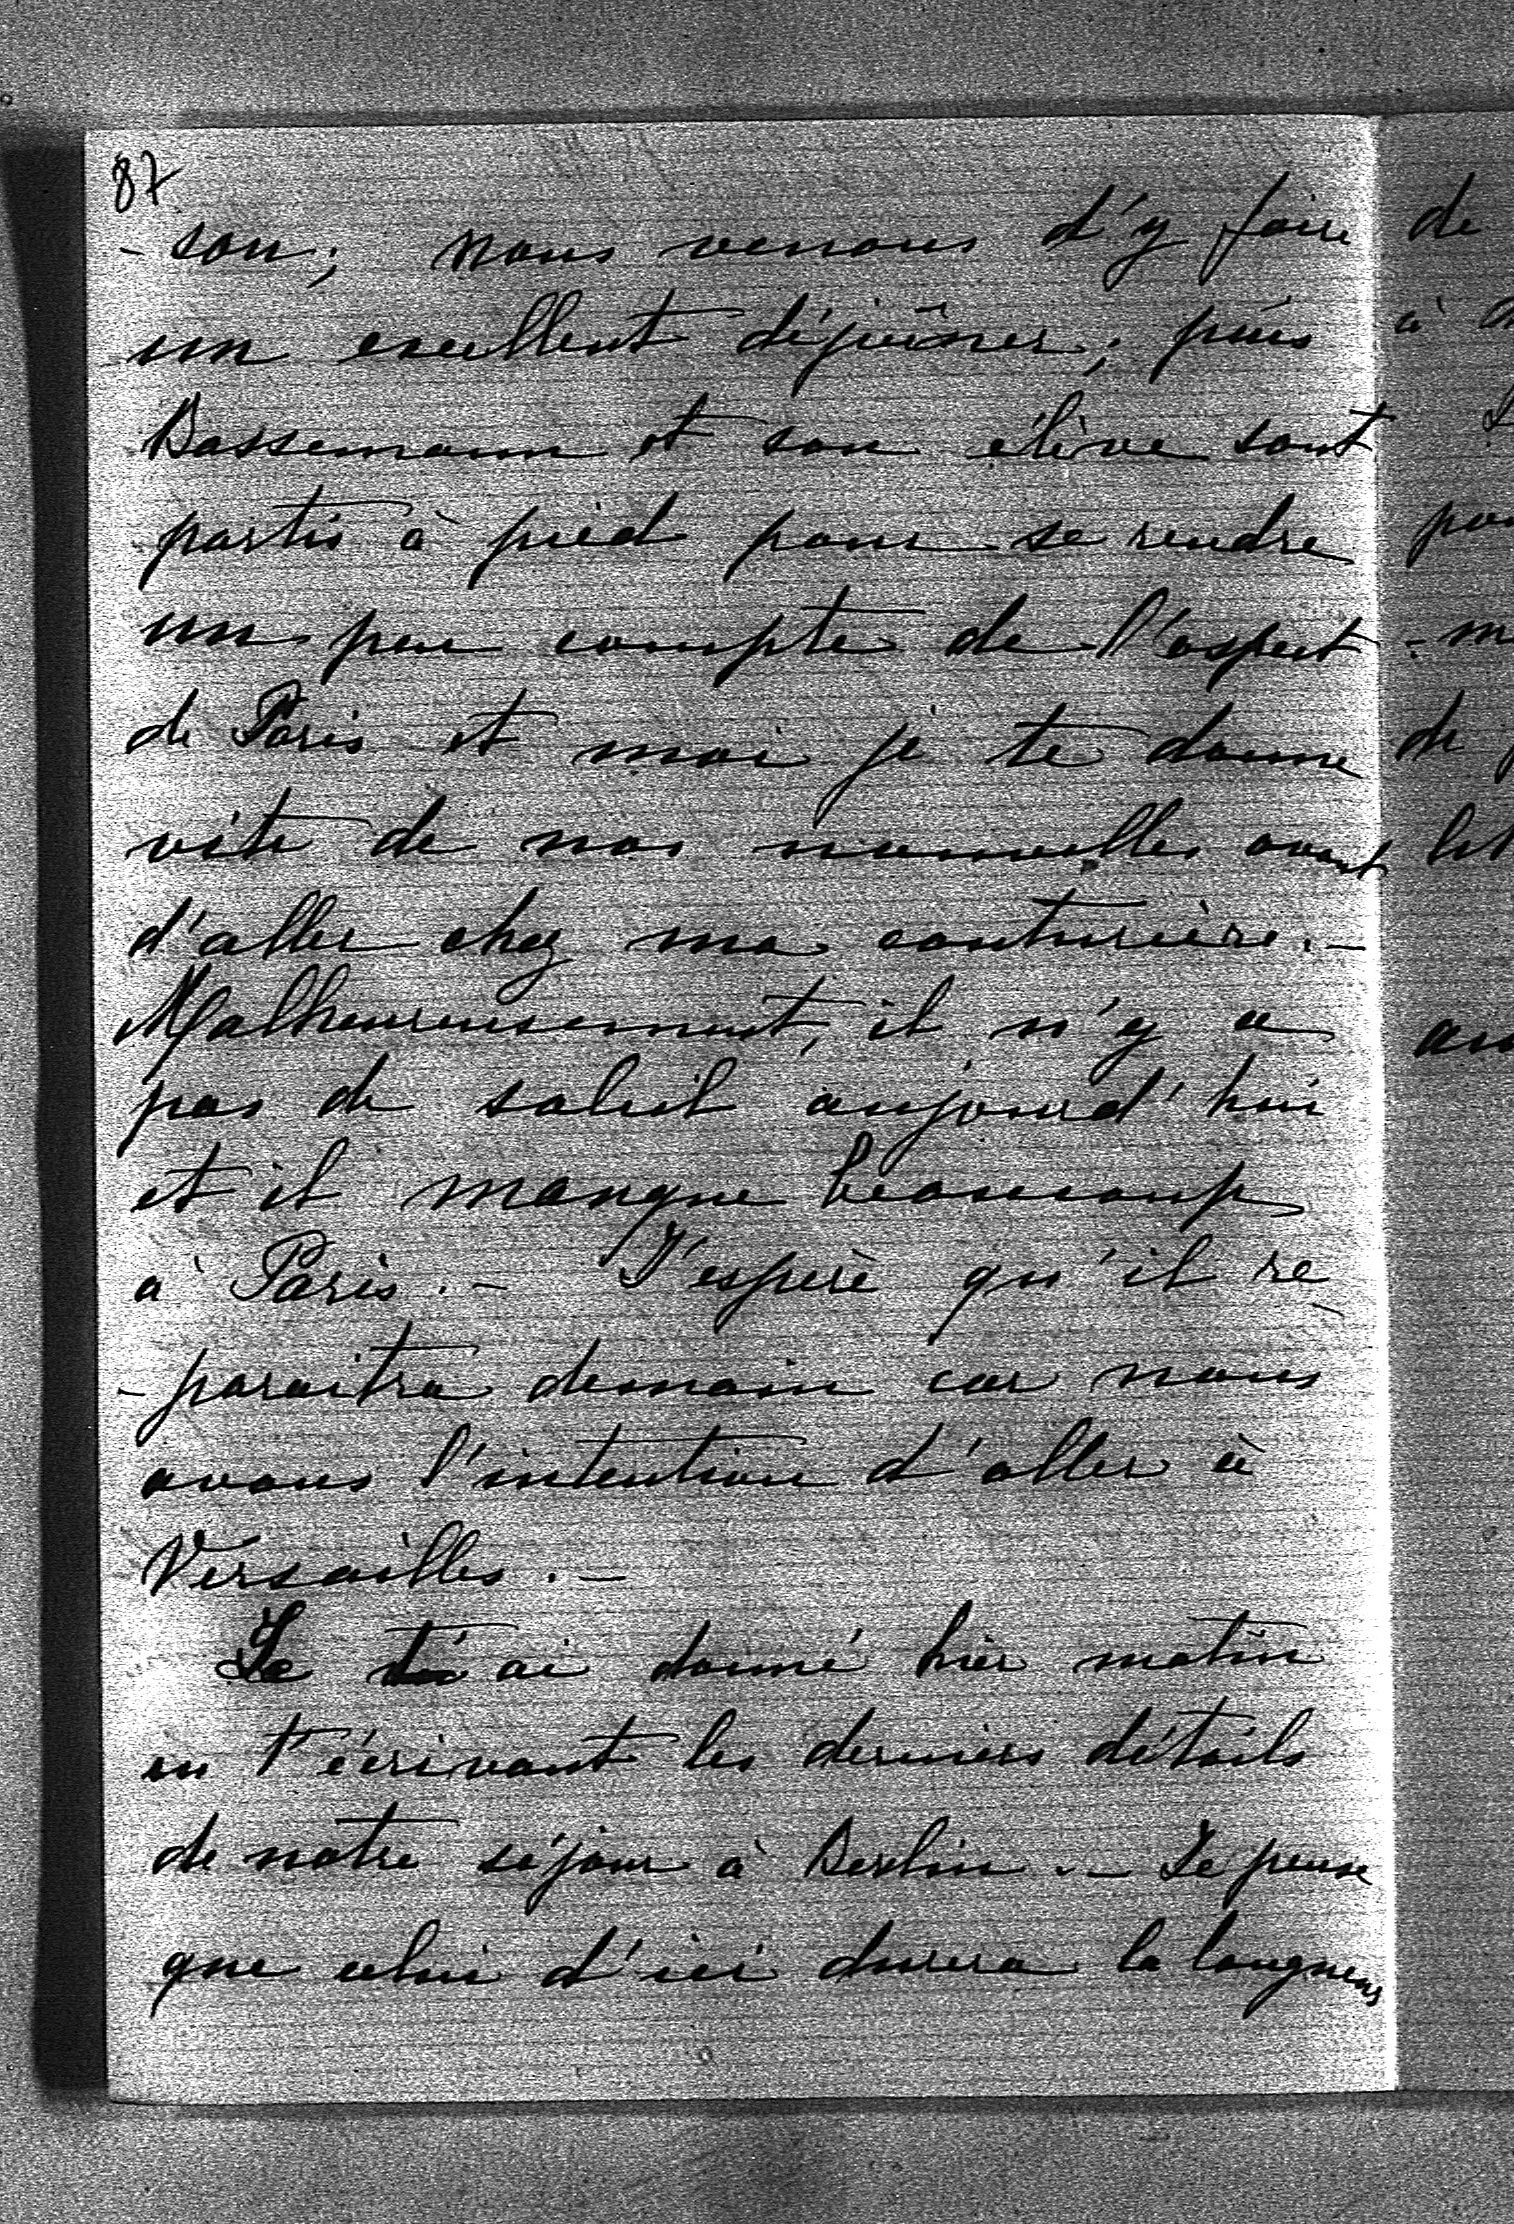 87
- son; nous venons d'y faire
un excellent déjeûner; puis
Bassemann et son élève sont
partis à pied pour se rendre
un peu compte de l'aspect
de Paris et moi je te donne
vite de nos nouvelles avant
d'aller chez ma couturière. -
Malheureusement, il n'y a
pas de soleil aujourd'hui
et il manque beaucoup
à Paris. - J'espère qu'il re
- paraitra demain car nous
avons l'intention d'aller à
Versailles. -
Je t'ai donné hier matin
en t'écrivant les derniers détails
de notre séjour à Berlin. - Je pense
que celui d'ici durera la longueur